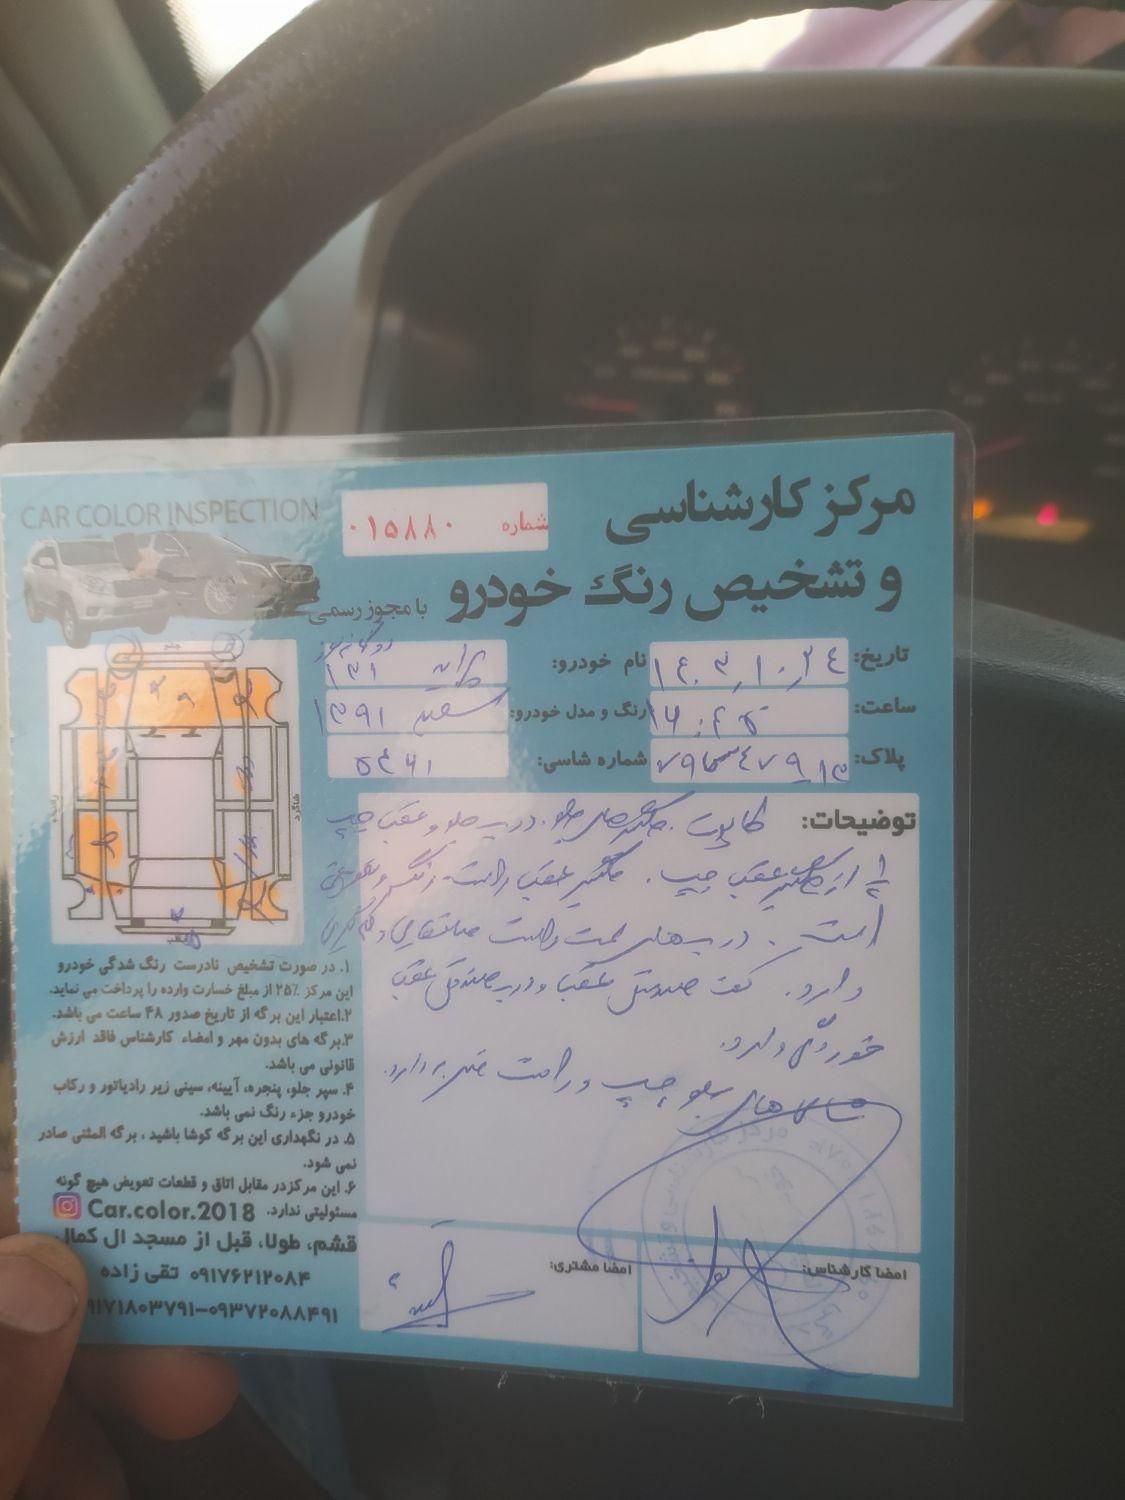 CAR COLOR INSPECTION
شماره ۰۱۵۸۸۰
مرکز کارشناسی
و تشخیص رنگ خودرو
با مجوز رسمی
تاریخ: ۱۴۰۳,۱۰,۲۴
نام خودرو: پراید ۱۳۱ دوگانه سوز
ساعت: ۱۶:۴۵
رنگ و مدل خودرو: سفید ۱۳۹۱
پلاک:
شماره شاسی:
جلو
راننده
شاگرد
عقب
توضیحات: کاپوت، گلگیرهای جلو، درب جلو و عقب چپ
۱/۲ از گلگیر عقب چپ، گلگیر عقب راست رنگ و تعویض
است. درب‌های سمت راست صافکاری و لکه‌گیری
دارد. کف صندوق عقب و درب صندوق عقب
خوردگی دارد.
جلو چپ و راست ضربه دارد.
۱. در صورت تشخیص نادرست رنگ شدگی خودرو
این مرکز ۲۵٪ از مبلغ خسارت وارده را پرداخت می نماید.
۲.اعتبار این برگه از تاریخ صدور ۴۸ ساعت می باشد.
۳.برگه های بدون مهر و امضاء کارشناس فاقد ارزش
قانونی می باشد.
۴. سپر جلو، پنجره، آیینه، سینی زیر رادیاتور و رکاب
خودرو جزء رنگ نمی باشد.
۵. در نگهداری این برگه کوشا باشید ، برگه المثنی صادر
نمی شود.
۶. این مرکزدر مقابل اتاق و قطعات تعویض هیچ گونه
مسئولیتی ندارد. Car.color.2018
قشم، طولا، قبل از مسجد ال کمال
۰۹۱۷۶۲۱۲۰۸۴ تقی زاده
۹۱۷۱۸۰۳۷۹۱-۰۹۳۷۲۰۸۸۴۹۱
امضا مشتری:
امضا کارشناس: